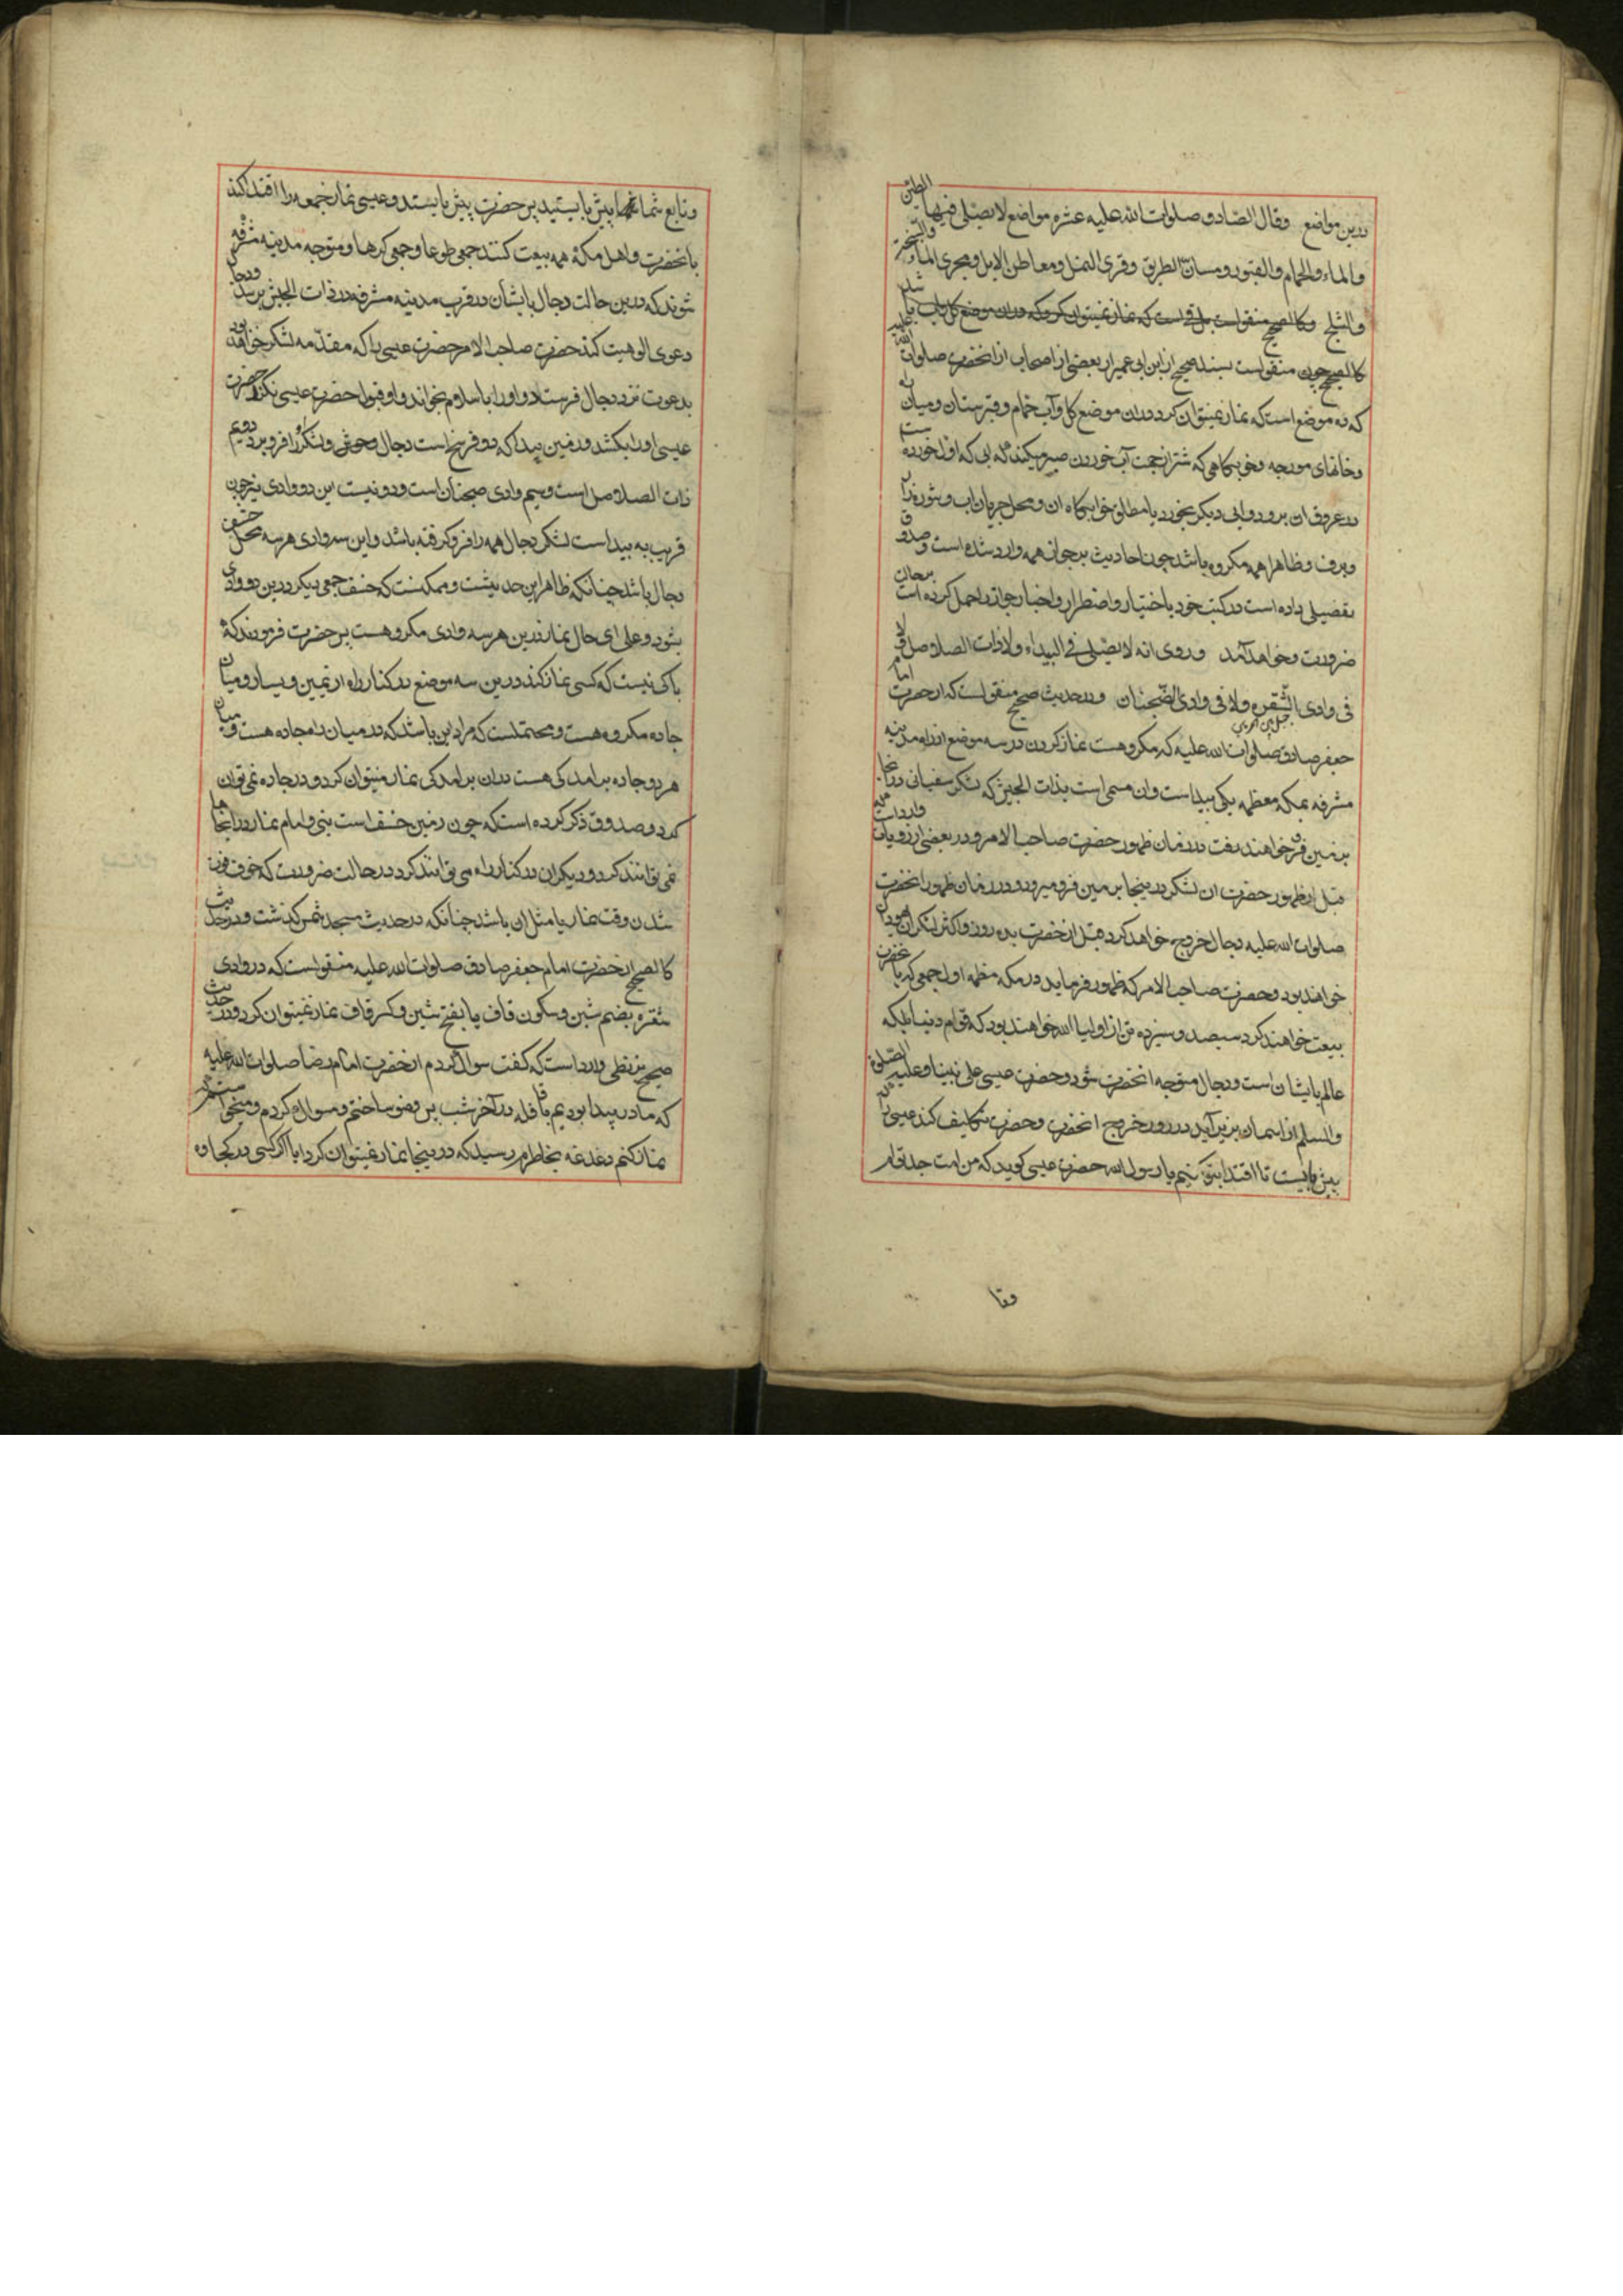 درین مواضع وقال الصادق صلوات الله علیه عشره مواضع لا یصلی فیها الطین
والماء والحمام والقبور ومسانّ الطریق وقری النمل ومعاطن الابل ومجری الماء والسبخ
والثلج وکالصحیح منقولست
کالصحیح چون منقولست بسند صحیح از ابن ابی عمیر از بعضی از اصحاب از انحضرت صلوات الله علیه
که ده موضع است که نماز نمیتوان کرد دران موضع کل وآب حمام وقبرستان ومیان راه
وخانهای مورچه وخوابکاهی که شتران جهت آب خوردن صبر میکنند که ابی که اول خورده است
در عروق ان برود وابی دیکر بخورد یا مطلق خوابکاه ان ومحل جریان اب وشوره زار
وبرف وظاهرا همه مکروه باشد چون احادیث بر جواز همه وارد شده است وصدوق
تفصیلی داده است در کتب خود باختیار واضطرار واخبار جواز را حمل کرده است بر حالت
ضرورت وخواهد آمد وروی انه لا یصلی فی البیداء ولا ذات الصلاصل ولا
فی وادی الشقره ولا فی وادی الضجنان ودر حدیث صحیح منقولست که از حضرت امام
جعفر صادق صلوات الله علیه که مکروهست نماز کردن در سه موضع از راه مدینه
مشرفه بمکه معظمه یکی بیداست وان مسمی است بذات الجیش که لشکر سفیانی در انجا
بزمین فرو خواهند رفت در زمان ظهور حضرت صاحب الامر ودر بعضی از روایات وارد است که
قبل از ظهور حضرت ان لشکر در ینجا بزمین فرو میرود ودر زمان ظهور انحضرت
صلوات الله علیه دجال خروج خواهد کرد قبل از انحضرت بده روز واکثر لشکر او یهودان
خواهند بود وحضرت صاحب الامر که ظهور فرماید در مکه معظمه اول جمعی که با انحضرت
بیعت خواهند کرد سیصد وسیزده تن از اولیاء الله خواهند بود که قوام دنیا بلکه
عالم بایشان است ودجال متوجه انحضرت شود وحضرت عیسی علی نبینا وعلیه الصلوة
والسلم از اسمان بزیر آید در روز خروج انحضرت وحضرت تکلیف کند عیسی را که
پیش بایست تا اقتدا بتو کنیم یا رسول الله حضرت عیسی کوید که من امت جد توام
وتا
وتابع شما شما پیش بایستید پس حضرت پیش بایستد وعیسی نماز جمعه را اقتدا کند
بانحضرت واهل مکه همه بیعت کنند جمعی طوعا وجمعی کرها ومتوجه مدینه مشرفه
شوند که درین حالت دجال بایشان در قرب مدینه مشرفه در ذات الجیش برسد ودجال
دعوی الوهیت کند حضرت صاحب الامر حضرت عیسی را که مقدمه لشکر خواهد بود
بدعوت نزد دجال فرستد واو را باسلام بخواند واو قبول حضرت عیسی نکند حضرت
عیسی او را بکشد در زمین بیدا که دو فرسخ است دجال وخوش ولشکر او را فرو برد دویم
ذات الصلاصل است وسیم وادی ضجنان است ودور نیست این دو وادی نیز چون
قریب به بیدا است لشکر دجال همه را فرو کرفته باشد واین سه وادی هر سه محل خسف
دجال باشد چنانکه ظاهر این حدیثست وممکنست که خسف جمعی دیکر درین دو وادی
بشود وعلی ای حال نماز درین هر سه وادی مکروهست پس حضرت فرمودند که
باکی نیست که کسی نماز کند درین سه موضع در کنار راه از یمین ویسار ومیان
جاده مکروه هست ومحتملست که مراد این باشد که در میان راه جاده هست ومیان
هر دو جاده برامدکی هست دران برامدکی نماز میتوان کرد ودر جاده نمی توان
کرد وصدوق ذکر کرده است که چون زمین خسف است نبی وامام نماز در انجاها
نمی توانند کرد ودیکران در کنار راه می توانند کرد در حالت ضرورت که خوف فوت
شدن وقت نماز یا مثل ان باشد چنانکه در حدیث مسجد شمس کذشت ودر حدیث
کالصحیح از حضرت امام جعفر صادق صلوات الله علیه منقولست که در وادی
شقره بضم شین وسکون قاف یا بفتح شین وکسر قاف نماز نمیتوان کرد ودر حدیث
صحیح بزنطی وارد است که کفت سوال کردم از حضرت امام رضا صلوات الله علیه
که ما در بیدا بودیم با قافله در آخر شب پس وضو ساختم ومسواک کردم ومیخواستم که
نماز کنم دغدغه بخاطرم رسید که در ینجا نماز نمیتوان کرد ایا اکر کسی در کجاوه